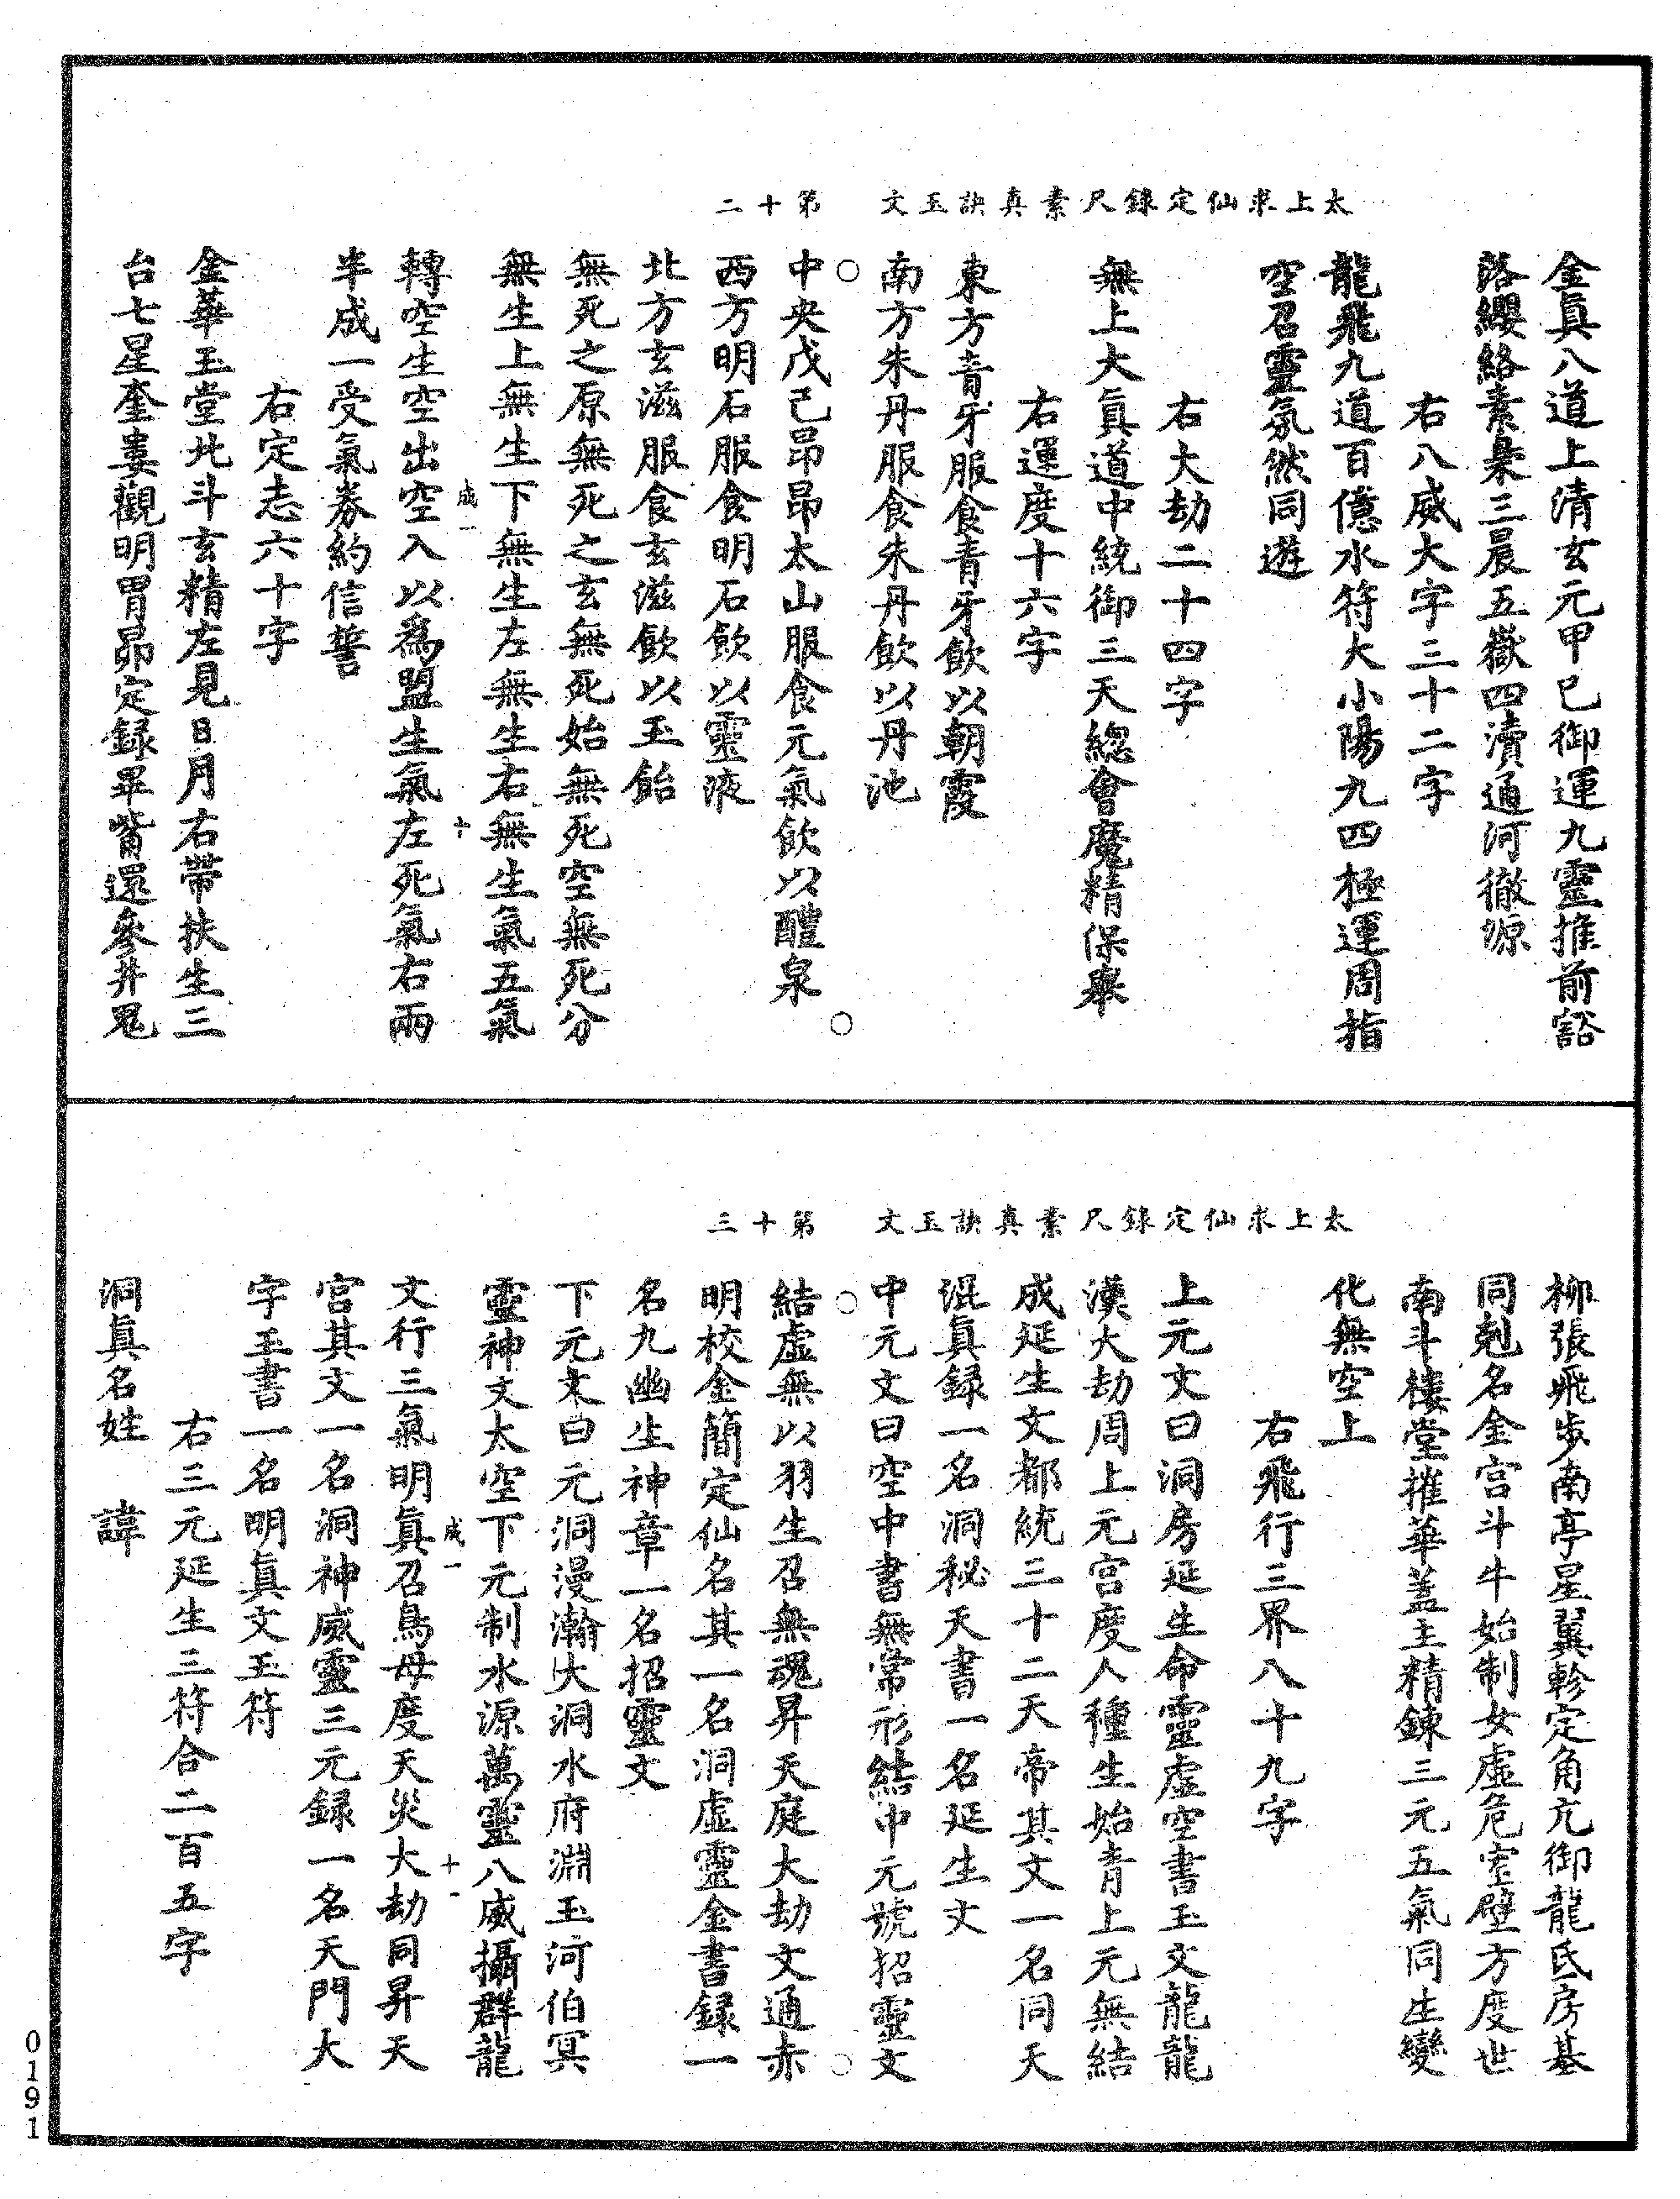 太上求仙定錄尺素真訣玉文　第十二
金真八道上清玄元甲巳御運九靈推前豁
洛纓絡素梟三晨五嶽四瀆通河徹源
右八威大字三十二字
龍飛九道百億水符大小陽九四極運周指
空召靈氛然同遊
右大劫二十四字
無上大真道中統御三天總會魔精保舉
右運度十六字
東方青牙服食青牙飲以朝霞
南方朱丹服食朱丹飲以丹池
中央戊己昂昂太山服食元氣飲以醴泉
西方明石服食明石飲以靈液
北方玄滋服食玄滋飲以玉飴
無死之原無死之玄無死始無死空無死分
無生上無生下無生左無生右無生氣五氣
轉空生空出空入以為盟生氣左死氣右兩
咸一　十
半成一受氣券約信誓
右定志六十字
金華玉堂北斗玄精左見日月右帶扶生三
台七星奎婁觀明胃昴定録畢觜還參井鬼
太上求仙定錄尺素真訣玉文　第十三
柳張飛步南亭星翼軫定角亢御龍氐房基
同剋名金宮斗牛始制女虛危室壁方度世
南斗樓堂推華蓋主精鍊三元五氣同生變
化無空上
右飛行三界八十九字
上元文曰洞房延生命靈虛空書玉文龍龍
漢大劫周上元宮度人種生始青上元無結
成延生文都統三十二天帝其文一名同天
混真録一名洞秘天書一名延生文
中元文曰空中書無常形結中元號招靈文
結虛無以羽生召無魂昇天庭大劫文通赤
明校金簡定仙名其一名洞虛靈金書録一
名九幽生神章一名招靈文
下元文曰元洞漫瀚大洞水府淵玉河伯冥
靈神文太空下元制水源萬靈八威攝群龍
文行三氣明真召鳥母度天災大劫同昇天
咸一　十一
宮其文一名洞神威靈三元録一名天門大
字玉書一名明真文玉符
右三元延生三符合二百五字
洞真名姓　諱
0191